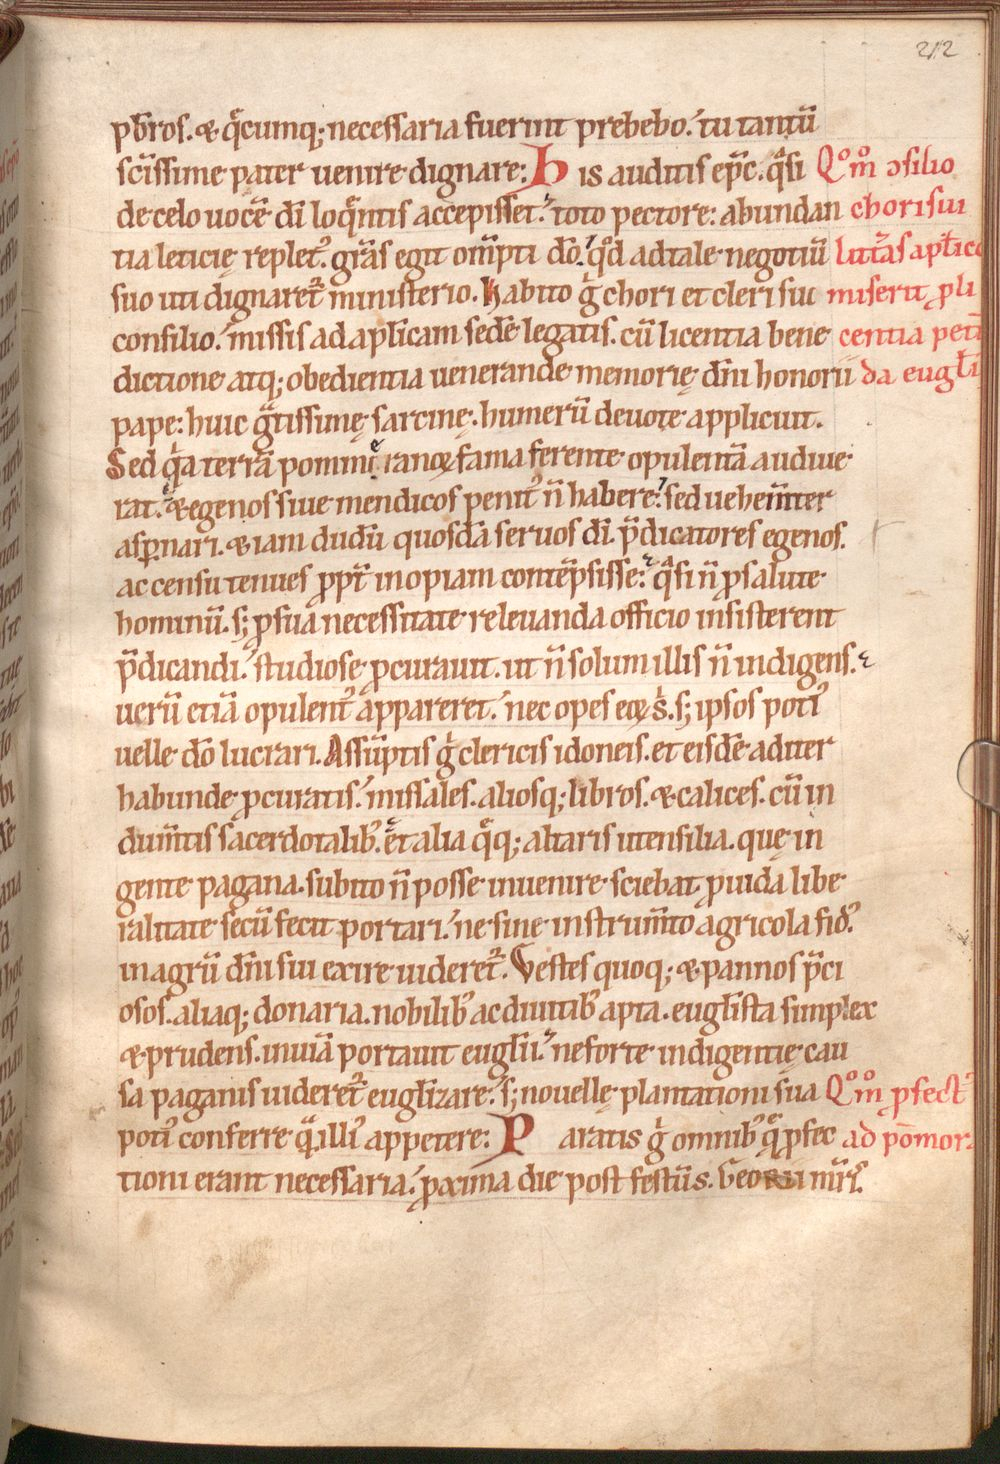 212
p̄bros. & q̄cumq; necessaria fuerint prebebo. tu tantū
sc̄issime pater uenire dignare: His auditis ep̄c. q̄si Qºmº ɔsilio
de celo uocē dī loq̄ntis accepisset. toto pectore: abundan chori sui
tia leticię replet᷒. gr̄as egit om̄pti dō. q̄d ad tale negotiū litt̄as ap̄lico
suo uti dignaret᷒ ministerio. Habito ḡ chori et cleri sui misit p̄ li
consilio. missis ad ap̄licam sedē legatis. cū licentia bene centia peti
dictione atq; obedientia uenerande memorię dn̄i honorii da eugl̄ii
pape: huic ḡtissimę sarcinę. humerū deuote applicuit.
Sed q̄a terrā pomeranoꝝ fama ferente opulentā audiue
rat. & egenos siue mendicos penit᷒ n̄ habere. sed uehem̄ter
asp̄nari. & iam dudū quosdā seruos dī p̄dicatores egenos.
ac censu tenues p̄pt̄ inopiam contēpsisse. q̄si n̄ p̄ salute
hominū. s; p̄ sua necessitate releuanda officio insisterent
p̄dicandi. studiose p̄curauit. ut n̄ solum illis n̄ indigens.
uerū etiā opulent᷒ appareret. nec opes eoꝝ s̄. s; ipsos poti᷒
uelle dō lucrari. Assūptis ḡ clericis idoneis. et eisdē ad iter
habunde p̄curatis. missales. aliosq; libros. & calices. cū in
dum̄tis sacerdotalib᷒. et alia q̄q; altaris utensilia. quę in
gente pagana. subito n̄ posse inuenire sciebat p̄uida libe
ralitate secū fecit portari. ne sine instrum̄to agricola fid᷒.
in agrū dn̄i sui exire uideret᷒. Vestes quoq; & pannos p̄ci
osos. aliaq; donaria. nobilib᷒ ac diuitib᷒ apta. eugl̄ista simplex
& prudens. in uiā portauit eugl̄ii. ne forte indigentię cau
sa paganis uideret᷒ eugl̄izare. s; nouellę plantationi sua Qºmº p̄fect᷒
poti᷒ conferre q̄ illi᷒ appetere: Paratis ḡ omnib᷒ q̄ p̄fec ad pōmora
tioni erant necessaria. p̄xima die post festū s. Georii m̄ris.